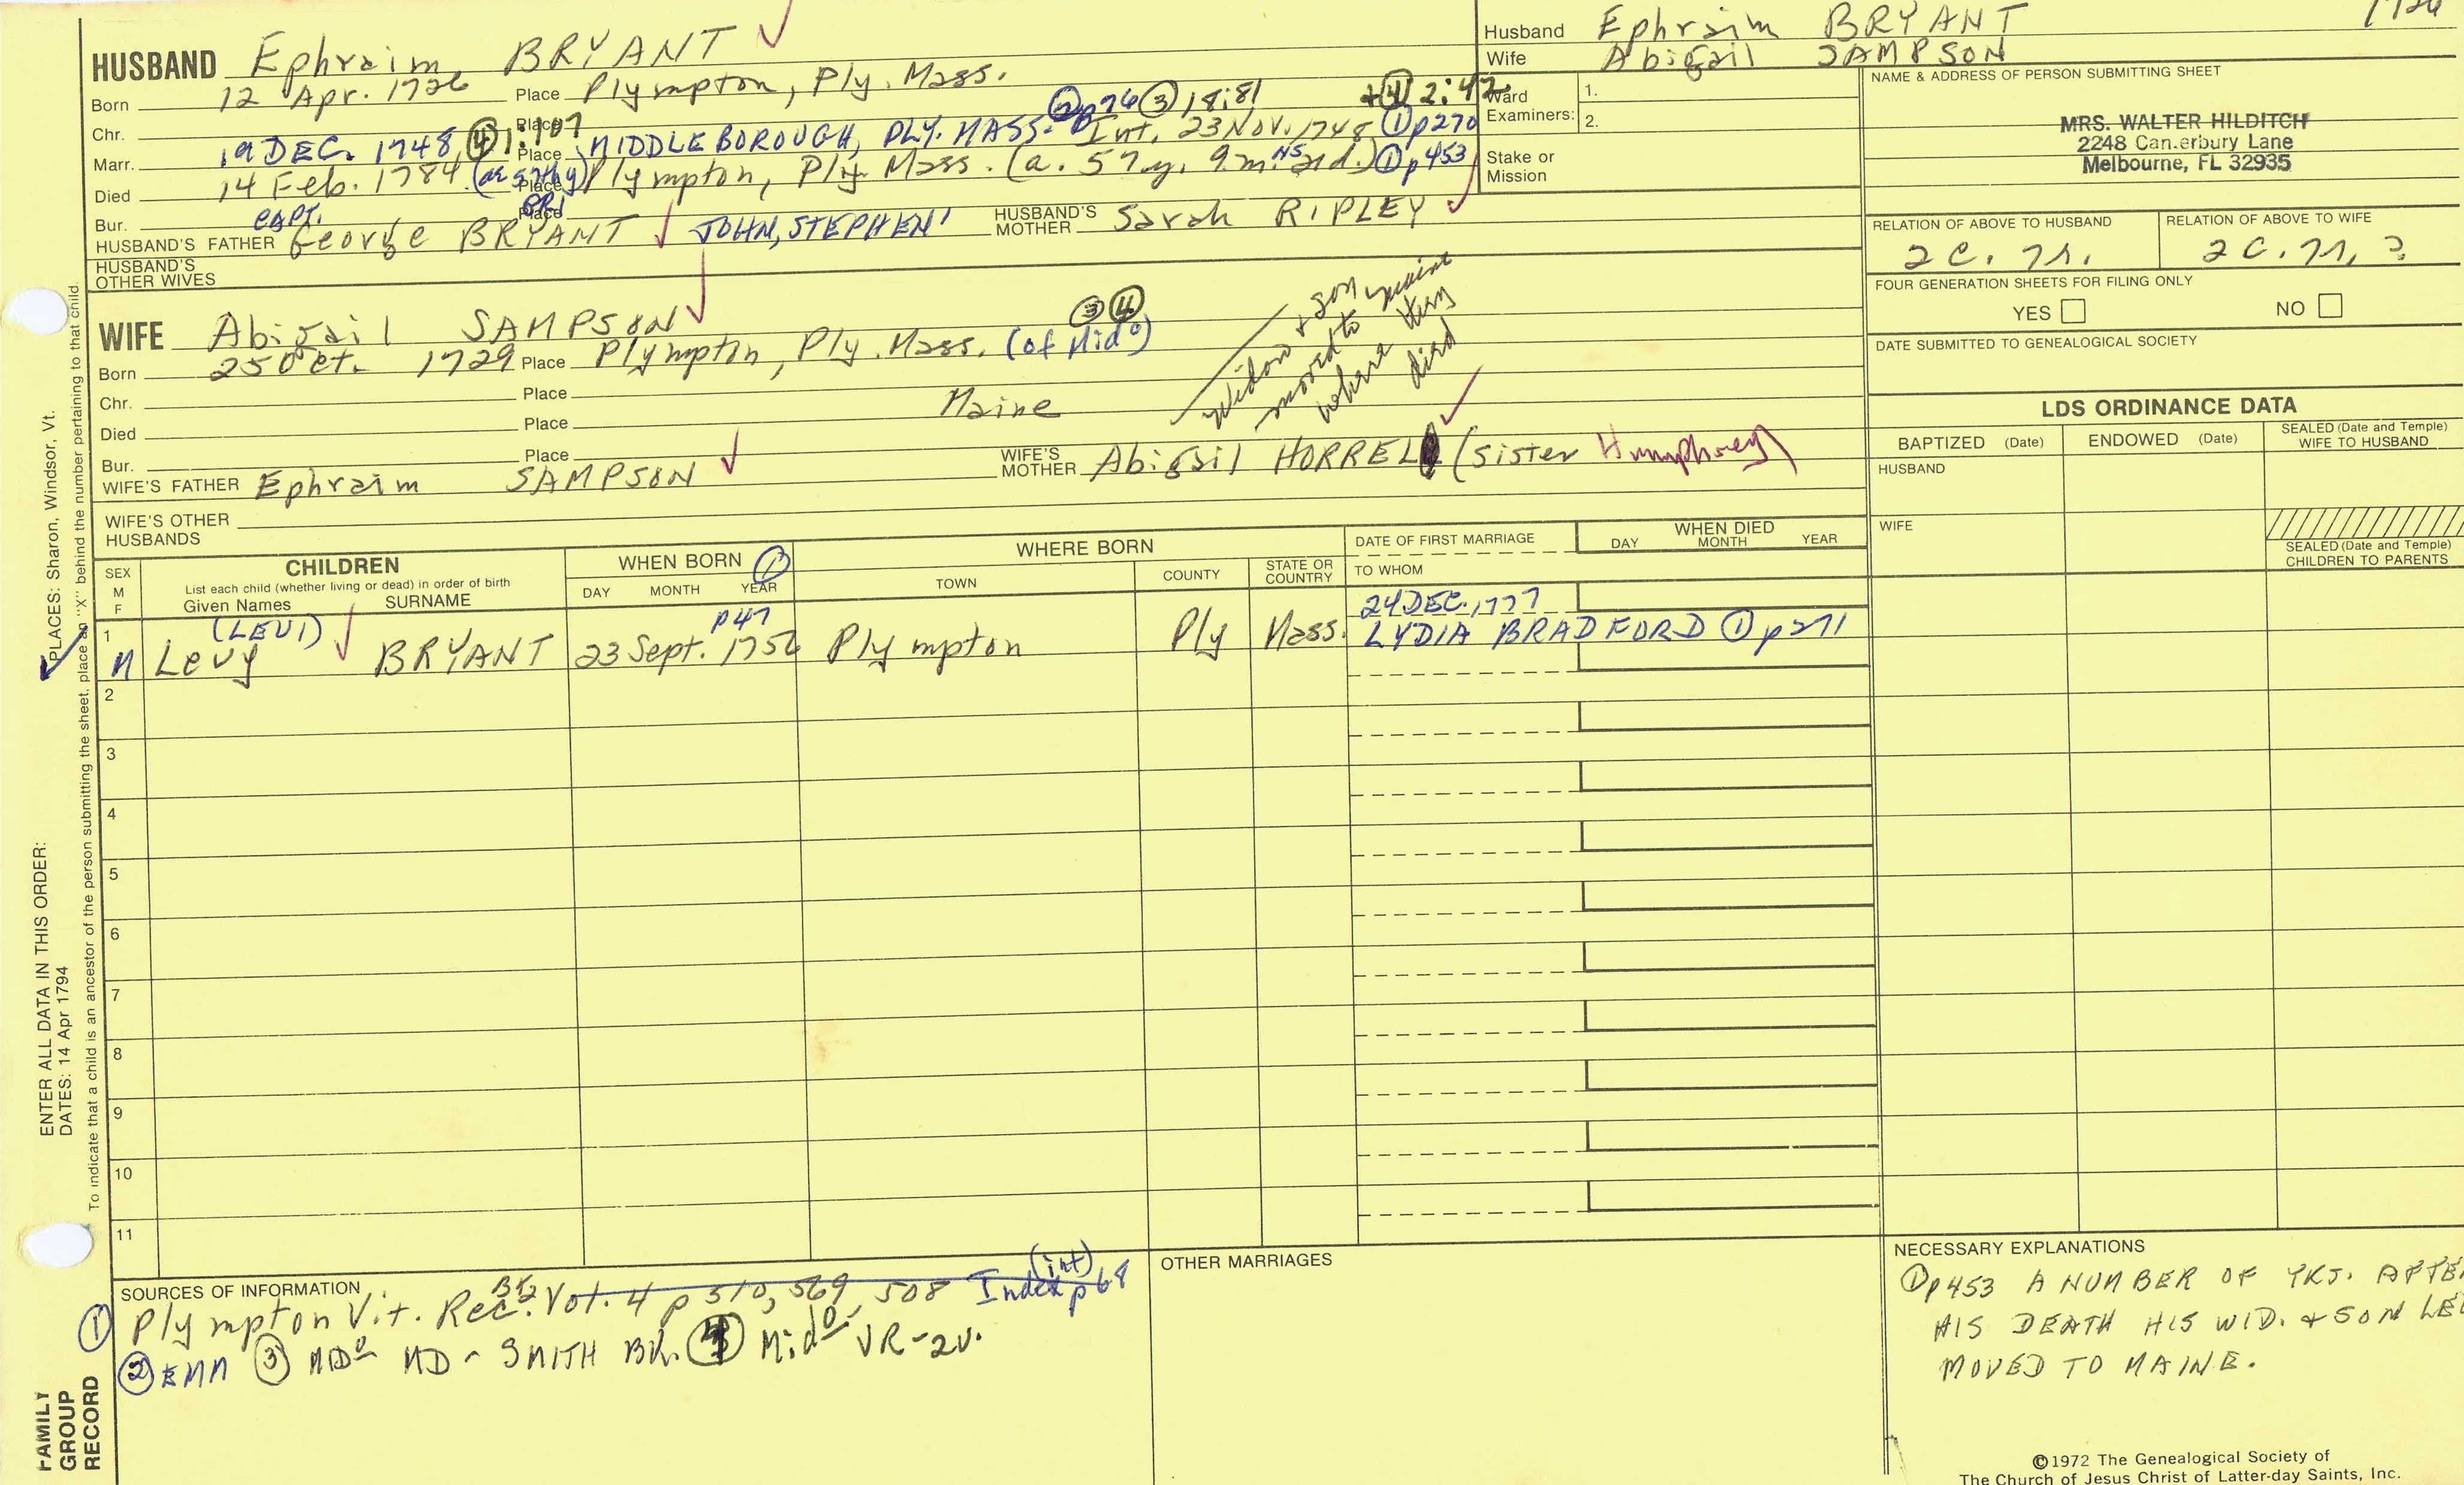 HUSBAND Ephraim BRYANT ✓
Born 12 Apr. 1726 Place Plympton, Ply. Mass.
Chr. Place ② p76 ③ 18:81 + ④ 2:42
Marr. 19 DEC. 1748 ④ 1:107 Place MIDDLEBOROUGH, PLY. MASS. Int. 23 Nov. 1748 ① p270
Died 14 Feb. 1784 Place Plympton, Ply Mass. (a. 57 y. 9 m. 2 d.) ① p453
Bur. Place
HUSBAND'S FATHER CAPT. George BRYANT ✓ JOHN, STEPHEN' HUSBAND'S MOTHER Sarah RIPLEY ✓
HUSBAND'S OTHER WIVES
WIFE Abigail SAMPSON ✓
Born 25 Oct. 1729 Place Plympton, Ply. Mass. (of Mido) ③ ④
Chr. Place
Died Place Maine
Widow + son moved to Maine where they died
Bur. Place
WIFE'S FATHER Ephraim SAMPSON ✓ WIFE'S MOTHER Abigail HORREL (sister Humphrey)
WIFE'S OTHER HUSBANDS
Husband Ephraim BRYANT 1726
Wife Abigail SAMPSON
Ward Examiners: 1.
2.
Stake or Mission
NAME & ADDRESS OF PERSON SUBMITTING SHEET
MRS. WALTER HILDITCH
2248 Can.erbury Lane
Melbourne, FL 32935
RELATION OF ABOVE TO HUSBAND RELATION OF ABOVE TO WIFE
FOUR GENERATION SHEETS FOR FILING ONLY
YES NO
DATE SUBMITTED TO GENEALOGICAL SOCIETY
LDS ORDINANCE DATA
BAPTIZED (Date) ENDOWED (Date) SEALED (Date and Temple) WIFE TO HUSBAND
HUSBAND
WIFE
SEALED (Date and Temple) CHILDREN TO PARENTS
SEX M F
CHILDREN
List each child (whether living or dead) in order of birth
Given Names SURNAME
WHEN BORN ①
DAY MONTH YEAR
WHERE BORN
TOWN COUNTY STATE OR COUNTRY
DATE OF FIRST MARRIAGE
TO WHOM
WHEN DIED
DAY MONTH YEAR
(LEVI) p47 24 DEC. 1777
1 M Levy ✓ BRYANT 23 Sept. 1756 Plympton Ply Mass. LYDIA BRADFORD ① p271
2
3
4
5
6
7
8
9
10
11
SOURCES OF INFORMATION
① Plympton Vit. Rec. Vol. 4 p 310, 569, 508 Index (int) p68
② EMM ③ MDo MD - SMITH BK. ④ Mido VR-2v.
OTHER MARRIAGES
NECESSARY EXPLANATIONS
① p453 A NUMBER OF YRS. AFTE
HIS DEATH HIS WID. + SON LE
MOVED TO MAINE.
©1972 The Genealogical Society of
The Church of Jesus Christ of Latter-day Saints, Inc.
PLACES: Sharon, Windsor, Vt.
ENTER ALL DATA IN THIS ORDER:
DATES: 14 Apr 1794
To indicate that a child is an ancestor of the person submitting the sheet, place an "X" behind the number pertaining to that child.
FAMILY
GROUP
RECORD